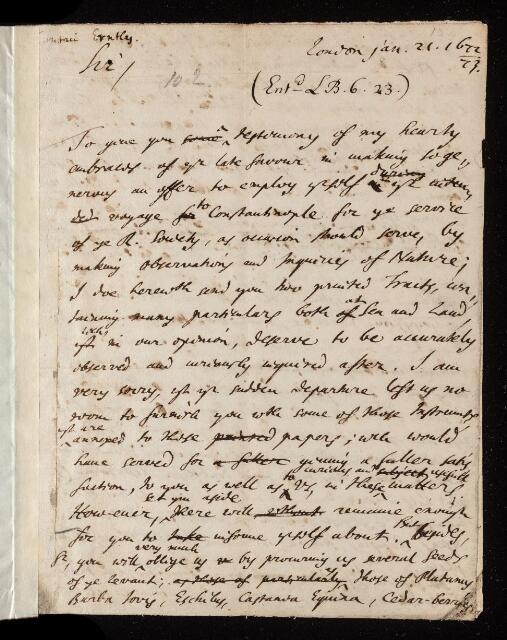 London Jan. 21. 1672/73.
Sir/
10.2
(Ent.d LB. 6. 23.)
To give you some testimony of my hearty
embraces of yr late favour in making so ge,,
nerous an offer to employ yrself during yr
voyage to Constantinople for ye service
of ye R. Society, as occasion should serve, by
making observations and Inquiries of Nature;
I doe herewth send you two printed Tracts, con,,
taining many particulars both at Sea and Land
wch, in our opinion, deserve to be accurately
observed and curiously inquired after. I am
very sorry, yt yr sudden departure left us no
room to furnish you wth some of those Instruments,
yt are
annexed to those printed papers; wch would
have served for a fuller giving a fuller satis
faction, to you as well as to us, in these matters;
However, there will without remaine enough
for you to take informe yrself about. But, besides,
Sr, you will very much oblige us by procuring us severall seeds
of ye Levant; as those of particularly those of Platanus
Barba Jovis, Eschilus, Castanea Equina, Cedar-berries